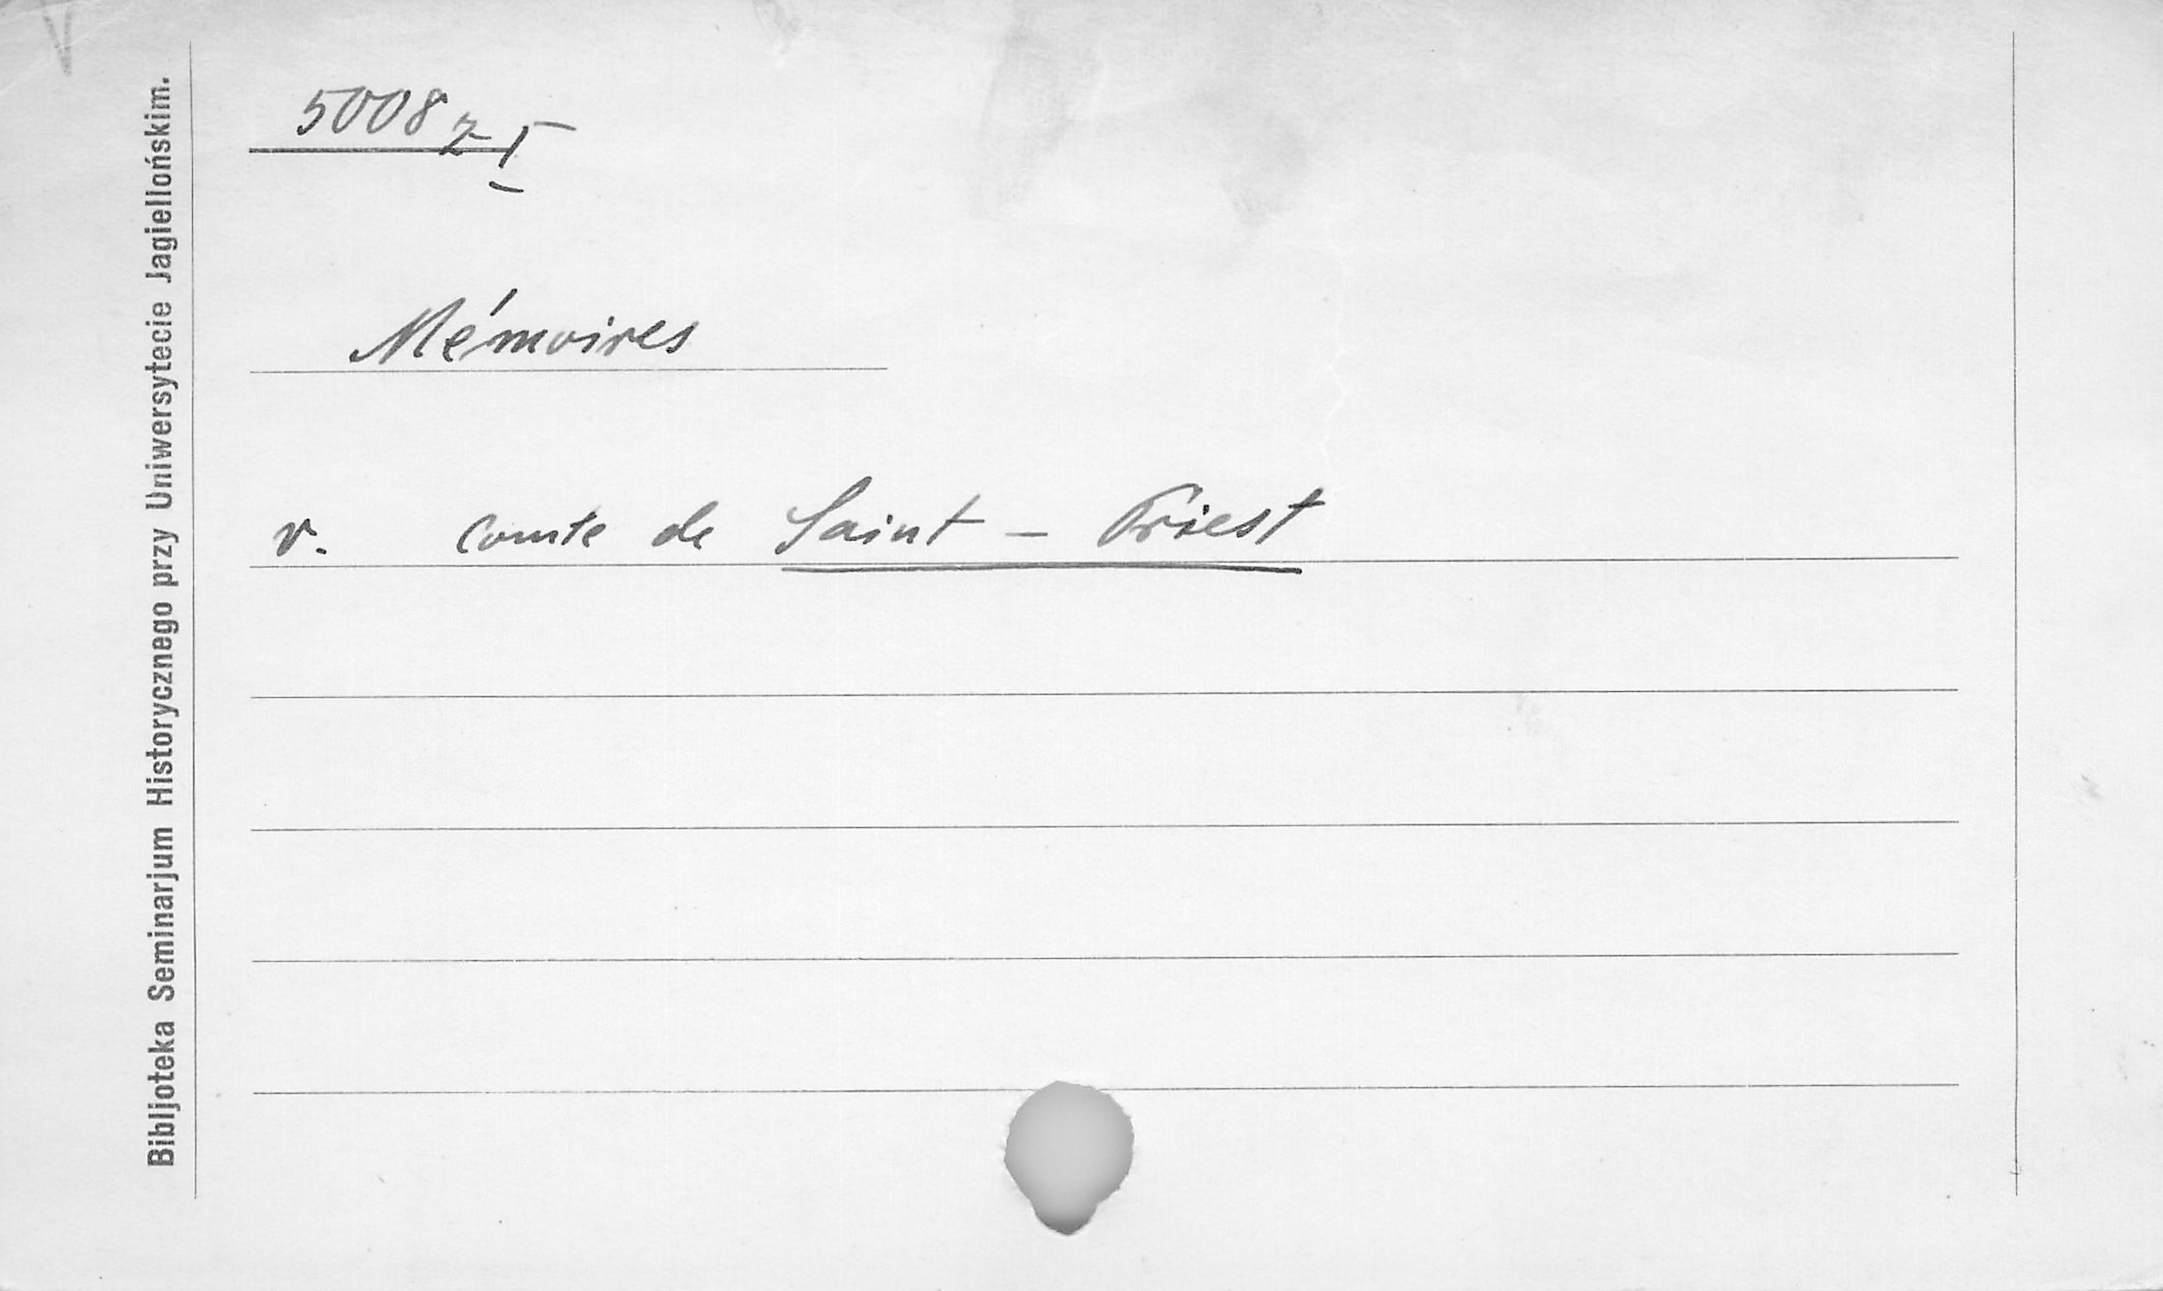 Bibljoteka Seminarjum Historycznego przy Uniwersytecie Jagiellońskim.
5008 z I
Mémoires
v. comte de Saint - Priest